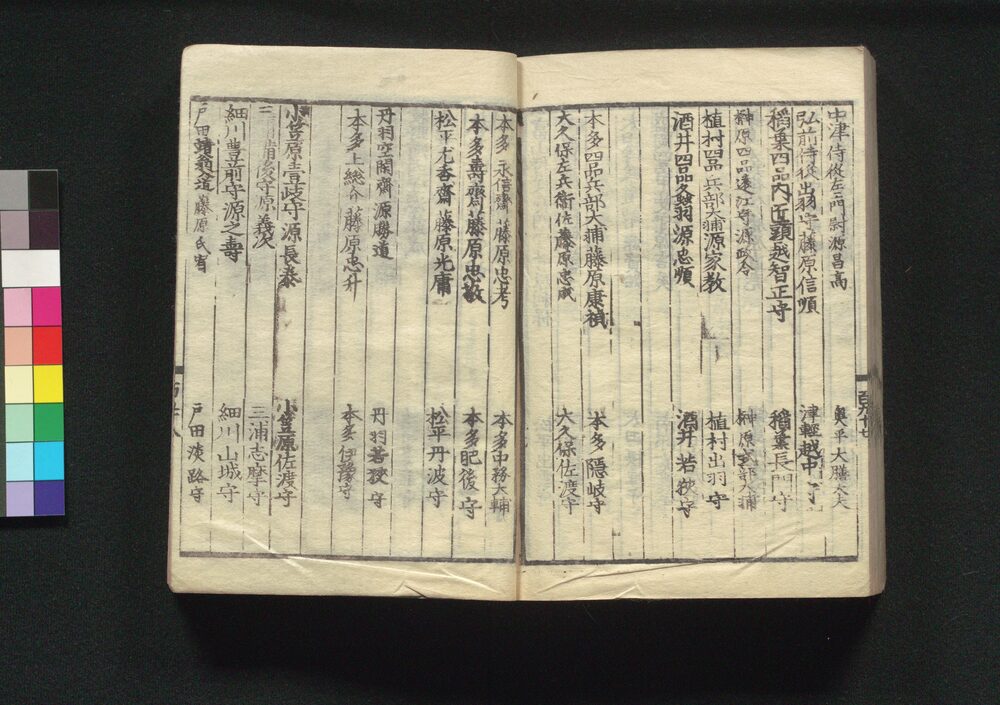 中津侍従左衛門尉源昌高 奥平大膳大夫
弘前侍従出羽守藤原信順 津軽越中守
稲葉四品内匠頭越智正守 稲葉長門守
榊原四品遠江守源政令 榊原式部大輔
植村四品兵部大輔源家教 植村出羽守
酒井四品 源忠順 酒井若狭守
本多四品兵部大輔藤原康禎 本多隠岐守
大久保左兵衛佐藤原忠成 大久保佐渡守
本多永信齋藤原忠考 本多中務大輔
本多壽齋藤原忠敬 本多肥後守
松平 齋藤原光庸 松平丹波守
丹羽 齋源勝道 丹羽若狭守
本多上総介藤原忠升 本多伊豫守
小笠原壱岐守源長泰 小笠原佐渡守
三浦 守源義次 三浦志摩守
細川豊前守源之壽 細川山城守
戸田 藤原氏宥 戸田淡路守